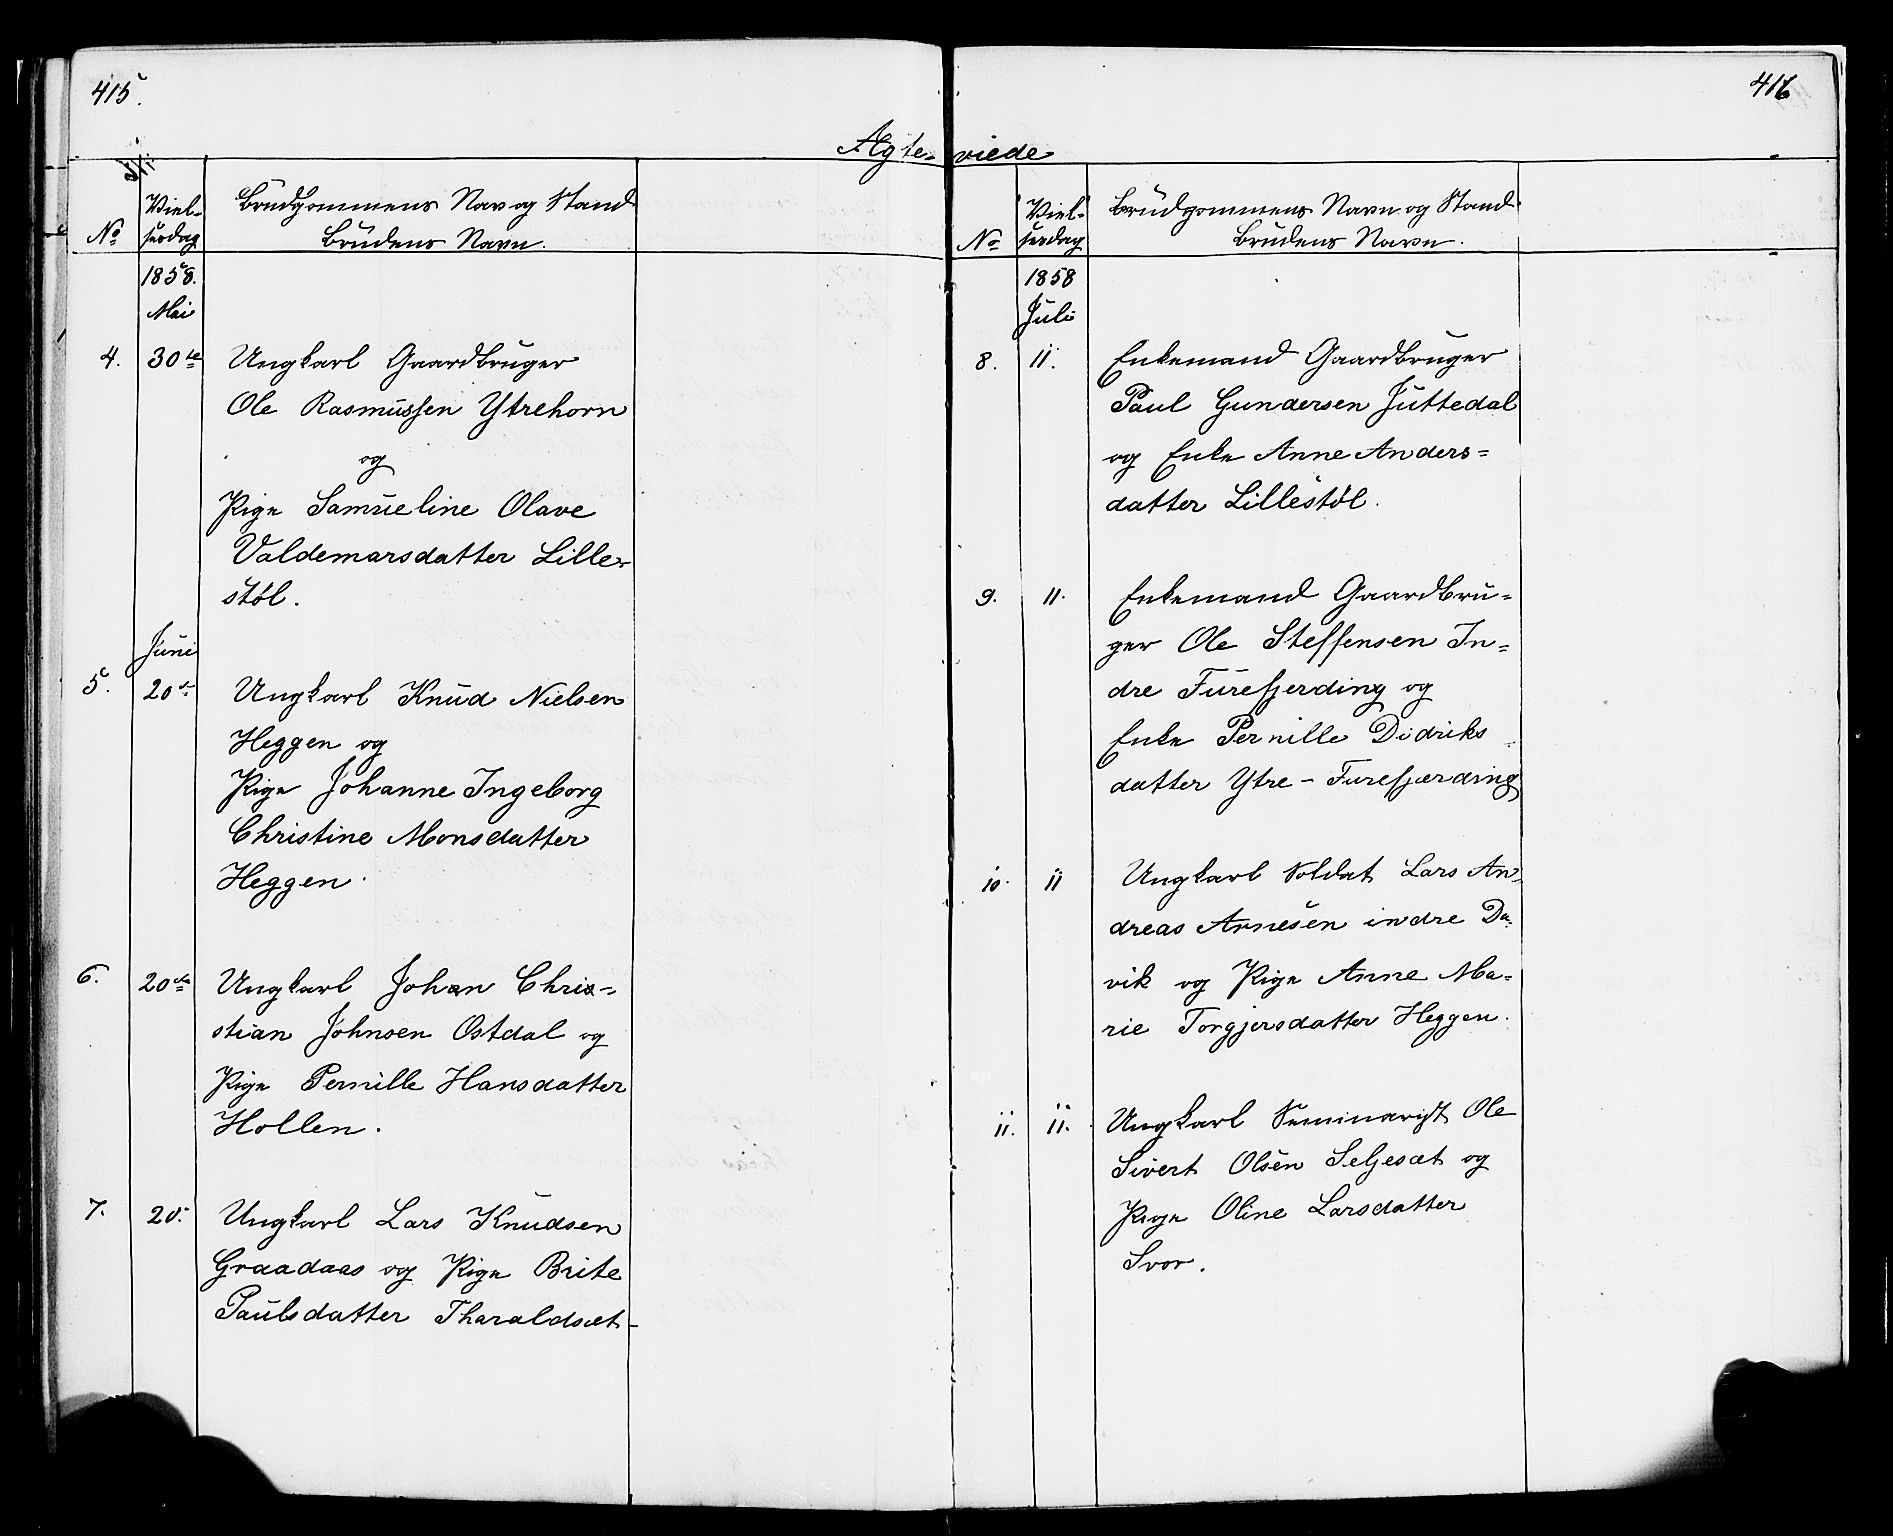 415.
Ægte-
No
Viel-
sesdag
Brudgommens Nav og Stand
Brudens Navn.
1858.
Mai
4. 30te Ungkarl Gaardbruger
Ole Rasmussen Ytrehorn
og
Pige Samueline Olave
Valdemarsdatter Lille-
støl.
Juni
5. 20de Ungkarl Knud Nielsen
Heggen og
Pige Johanne Ingeborg
Christine Monsdatter
Heggen.
6. 20de Ungkarl Johan Chri-
stian Johnsen Ostdal og
Pige Pernille Hansdatter
Hollen.
7. 20. Ungkarl Lars Knudsen
Graadaas og Pige Brite
Paulsdatter Tharaldsæt
416
viede
No
Viel-
sesdag
Brudgommens Navn og Stand
Brudens Navn.
1858
Juli
8. 11. Enkemand Gaardbruger
Paul Gundersen Juttedal
og Enke Anne Anders-
datter Lillestøl.
9. 11. Enkemand Gaardbru-
ger Ole Steffensen In-
dre Furefjerding og
Enke Pernille Didriks
datter Ytre-Furefjærding
10. 11 Ungkarl Soldat Lars An-
dreas Arnesen indre Da-
vik og Pige Anne Ma-
rie Torgjersdatter Heggen.
11. 11. Ungkarl Seminarist Ole
Sivert Olsen Seljesæt og
Pige Oline Larsdatter
Svor.